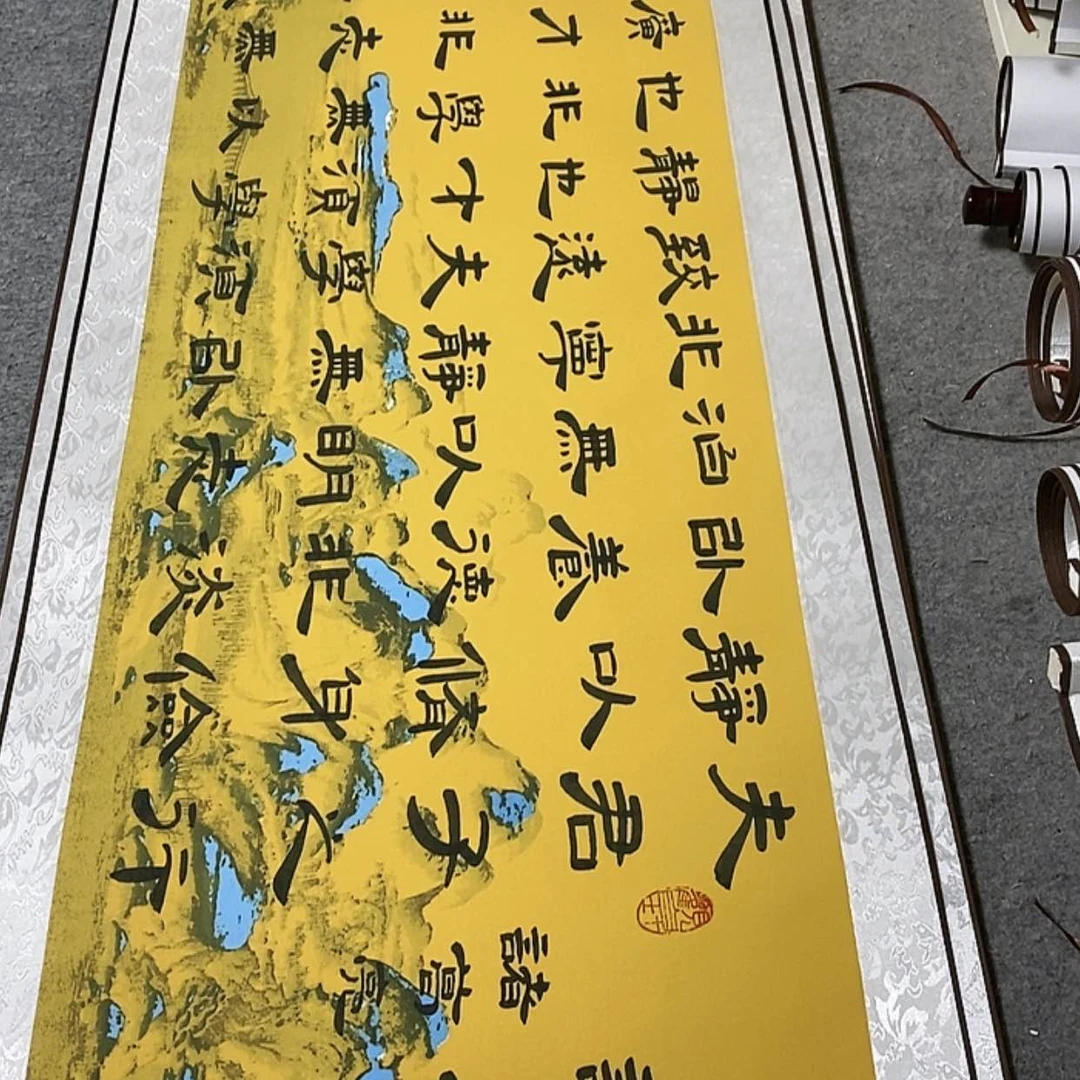 諸葛亮
夫君子之行
靜以脩身儉
以養德非淡
泊無以明志
非寧靜無以
致遠夫學須
靜也才須學
也非學無以
廣才非志無